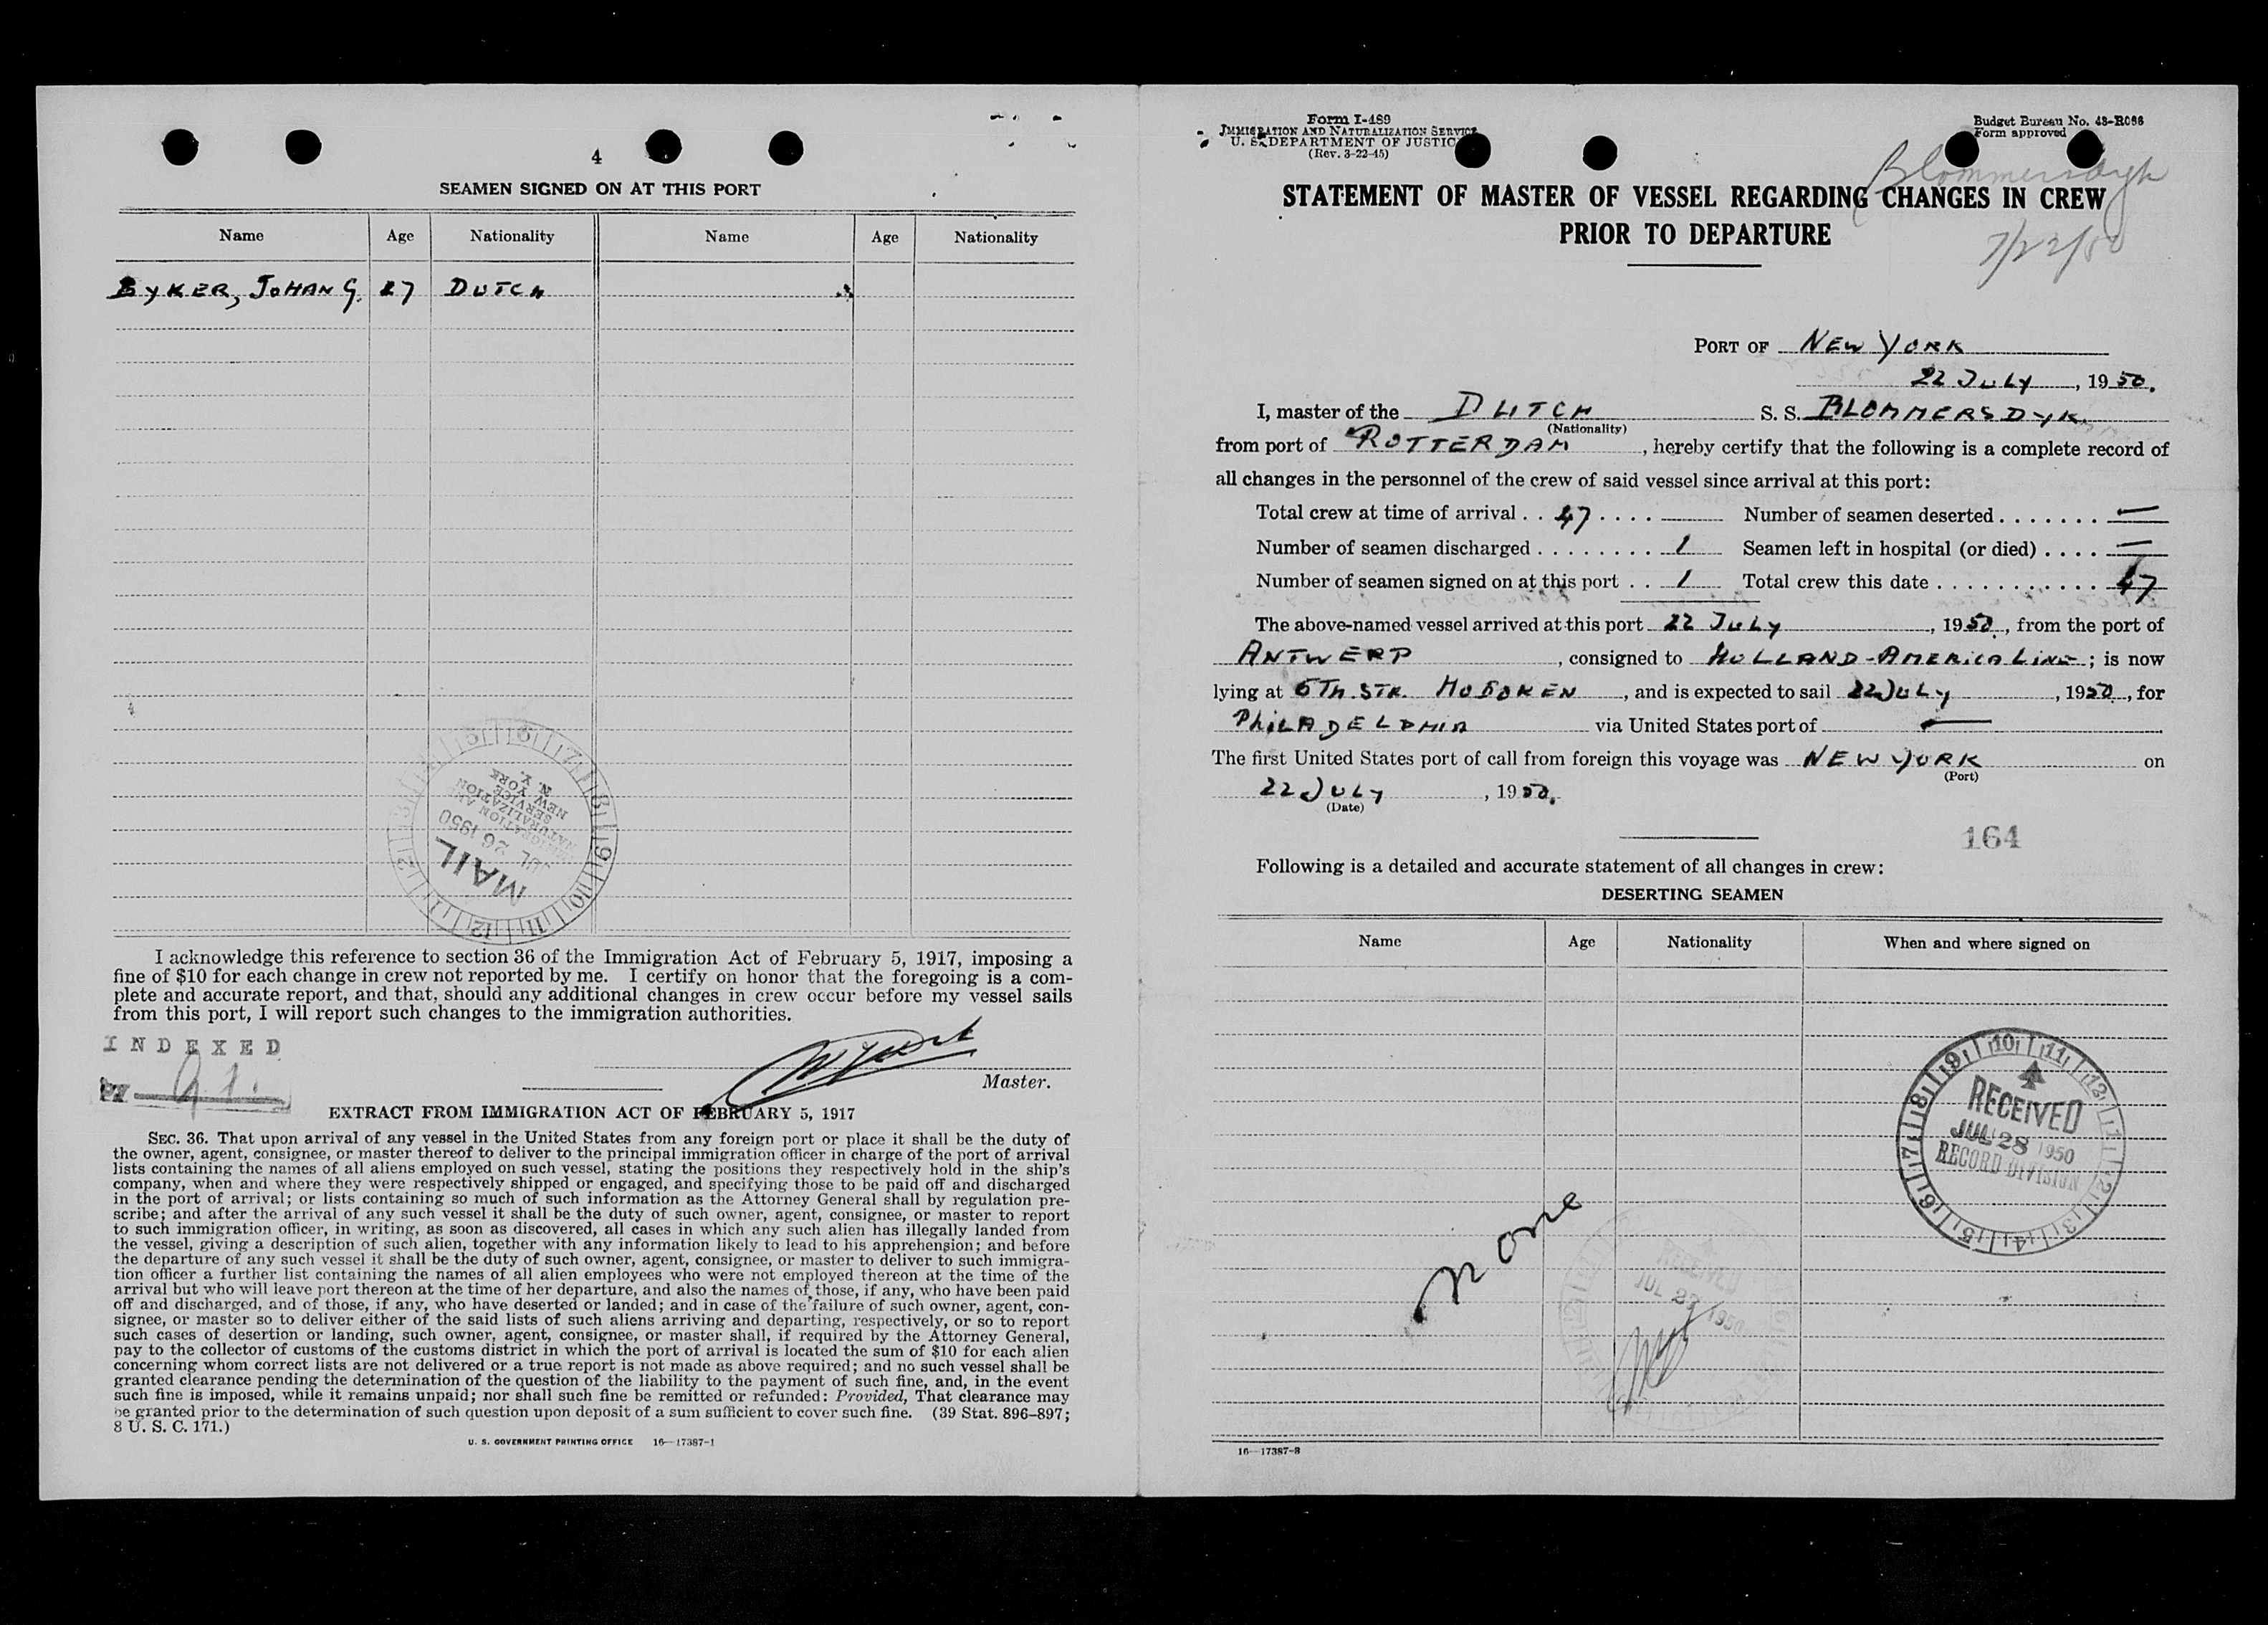 4
SEAMEN SIGNED ON AT THIS PORT
Name Age Nationality Name Age Nationality
BYKER, JOHAN G. 27 DUTCH
MAIL
JUL 26 1950
NATURALIZATION
SERVICE
NEW YORK
N. Y.
I acknowledge this reference to section 36 of the Immigration Act of February 5, 1917, imposing a
fine of $10 for each change in crew not reported by me. I certify on honor that the foregoing is a com-
plete and accurate report, and that, should any additional changes in crew occur before my vessel sails
from this port, I will report such changes to the immigration authorities.
INDEXED
BY
Master.
EXTRACT FROM IMMIGRATION ACT OF FEBRUARY 5, 1917
SEC. 36. That upon arrival of any vessel in the United States from any foreign port or place it shall be the duty of
the owner, agent, consignee, or master thereof to deliver to the principal immigration officer in charge of the port of arrival
lists containing the names of all aliens employed on such vessel, stating the positions they respectively hold in the ship's
company, when and where they were respectively shipped or engaged, and specifying those to be paid off and discharged
in the port of arrival; or lists containing so much of such information as the Attorney General shall by regulation pre-
scribe; and after the arrival of any such vessel it shall be the duty of such owner, agent, consignee, or master to report
to such immigration officer, in writing, as soon as discovered, all cases in which any such alien has illegally landed from
the vessel, giving a description of such alien, together with any information likely to lead to his apprehension; and before
the departure of any such vessel it shall be the duty of such owner, agent, consignee, or master to deliver to such immigra-
tion officer a further list containing the names of all alien employees who were not employed thereon at the time of the
arrival but who will leave port thereon at the time of her departure, and also the names of those, if any, who have been paid
off and discharged, and of those, if any, who have deserted or landed; and in case of the failure of such owner, agent, con-
signee, or master so to deliver either of the said lists of such aliens arriving and departing, respectively, or so to report
such cases of desertion or landing, such owner, agent, consignee, or master shall, if required by the Attorney General,
pay to the collector of customs of the customs district in which the port of arrival is located the sum of $10 for each alien
concerning whom correct lists are not delivered or a true report is not made as above required; and no such vessel shall be
granted clearance pending the determination of the question of the liability to the payment of such fine, and, in the event
such fine is imposed, while it remains unpaid; nor shall such fine be remitted or refunded: Provided, That clearance may
be granted prior to the determination of such question upon deposit of a sum sufficient to cover such fine. (39 Stat. 896–897;
8 U. S. C. 171.)
U. S. GOVERNMENT PRINTING OFFICE 16—17387-1
Form I-489
IMMIGRATION AND NATURALIZATION SERVICE
U. S. DEPARTMENT OF JUSTIC
(Rev. 3-22-45)
Budget Bureau No. 43-R086
Form approved
Blommersdyk
7/22/50
STATEMENT OF MASTER OF VESSEL REGARDING CHANGES IN CREW
PRIOR TO DEPARTURE
PORT OF NEW YORK
22 JULY, 1950.
I, master of the DUTCH S. S. BLOMMERSDYK
(Nationality)
from port of ROTTERDAM, hereby certify that the following is a complete record of
all changes in the personnel of the crew of said vessel since arrival at this port:
Total crew at time of arrival . . 47 . . . . Number of seamen deserted . . . . . . . —
Number of seamen discharged . . . . . . . . 1 Seamen left in hospital (or died) . . . . —
Number of seamen signed on at this port . . 1 Total crew this date . . . . . . . . . . . . 47
The above-named vessel arrived at this port 22 JULY, 1950, from the port of
ANTWERP, consigned to HOLLAND-AMERICA LINE; is now
lying at 5TH. STR. HOBOKEN, and is expected to sail 22 JULY, 1950, for
PHILADELPHIA via United States port of —
The first United States port of call from foreign this voyage was NEW YORK on
(Port)
22 JULY, 1950.
(Date)
164
Following is a detailed and accurate statement of all changes in crew:
DESERTING SEAMEN
Name Age Nationality When and where signed on
RECEIVED
JUL 28 1950
RECORD DIVISION
none
RECEIVED
JUL 27 1950
16—17387-3